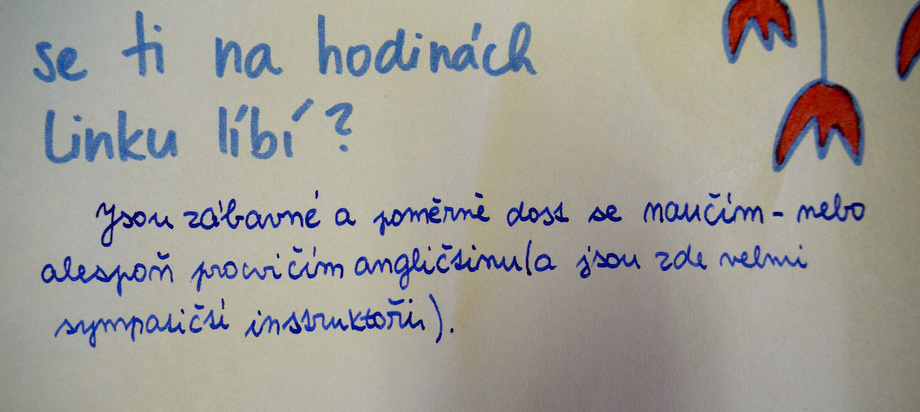 se ti na hodinách
Linku líbí?
Jsou zábavné a poměrně dost se naučím - nebo
alespoň procvičím angličtinu (a jsou zde velmi
sympatičtí instruktoři).